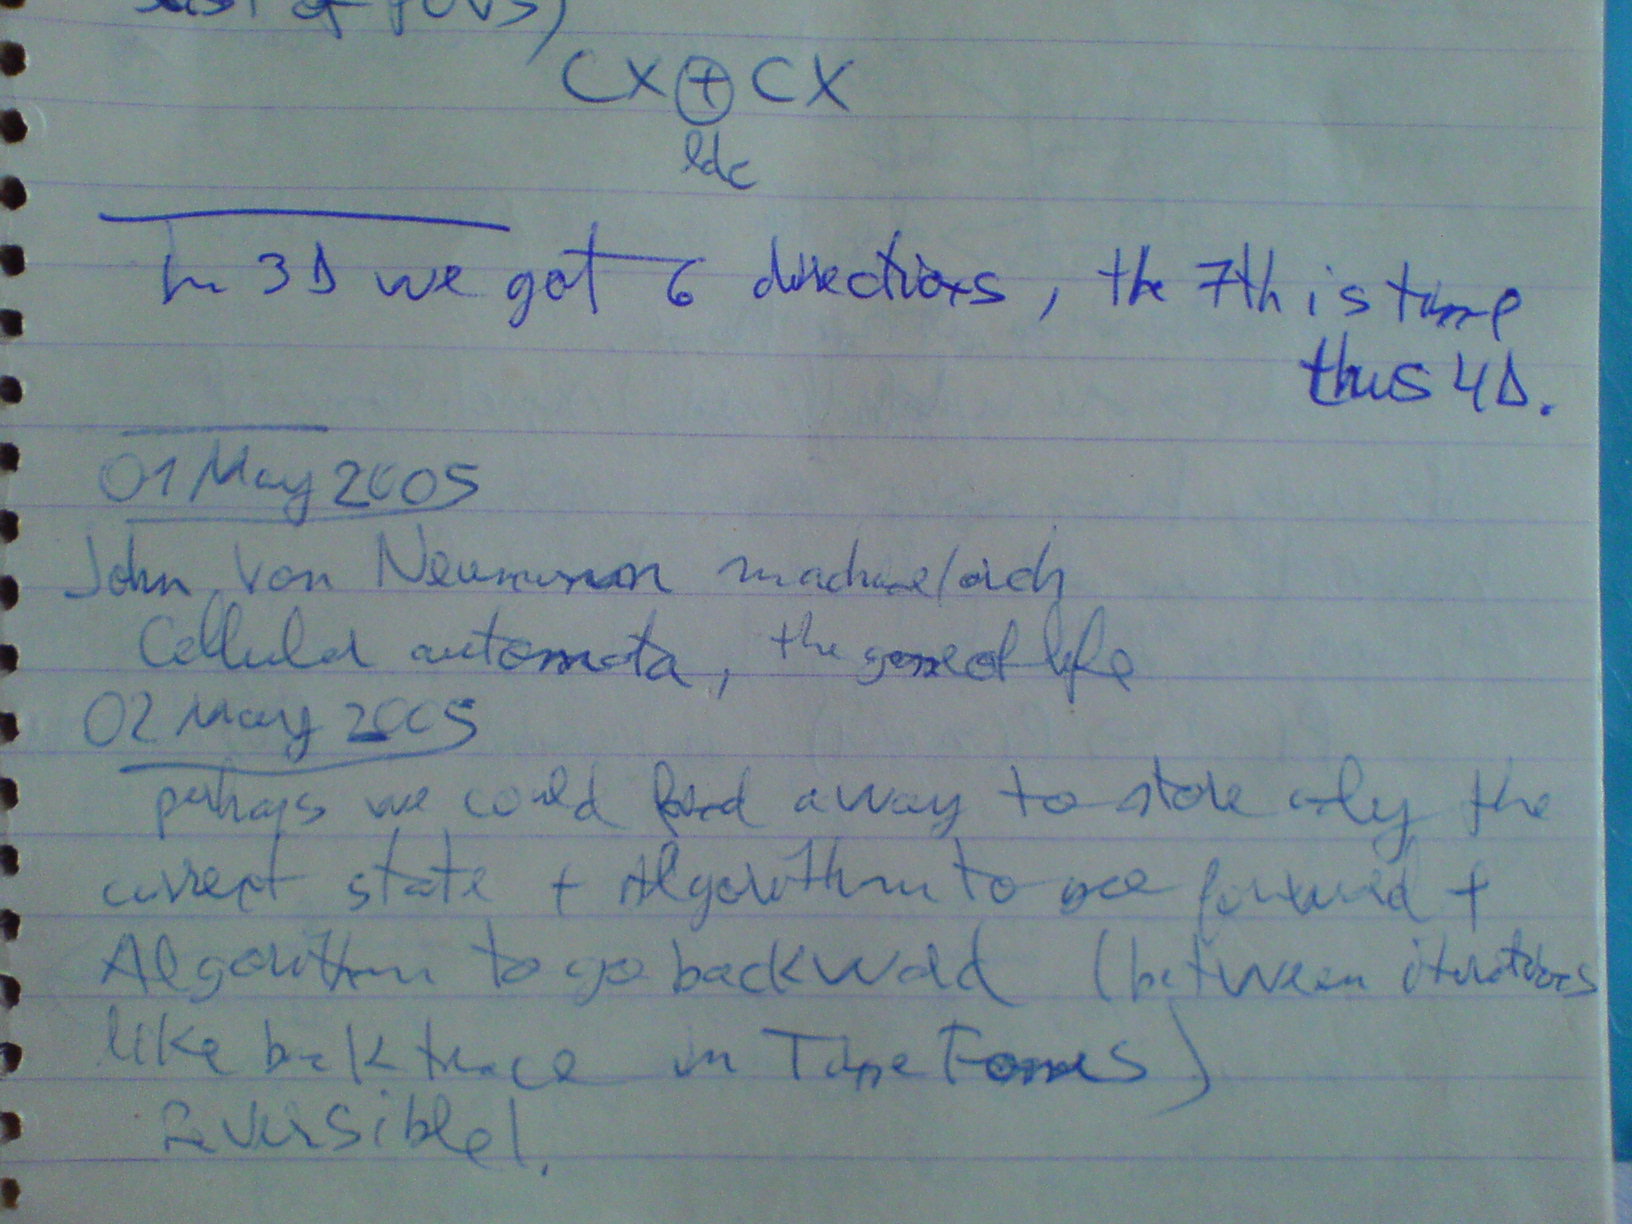 list of POVs)
CX ⊕ CX
ldc
In 3D we got 6 directions, the 7th is time
thus 4D.
01 May 2005
John Von Neumann machine/arch
Cellular automata, the game of life
02 May 2005
perhaps we could find a way to store only the
current state + Algorithm to go forward +
Algorithm to go backward (between iterations
like back trace in Time Frames)
Reversible!.